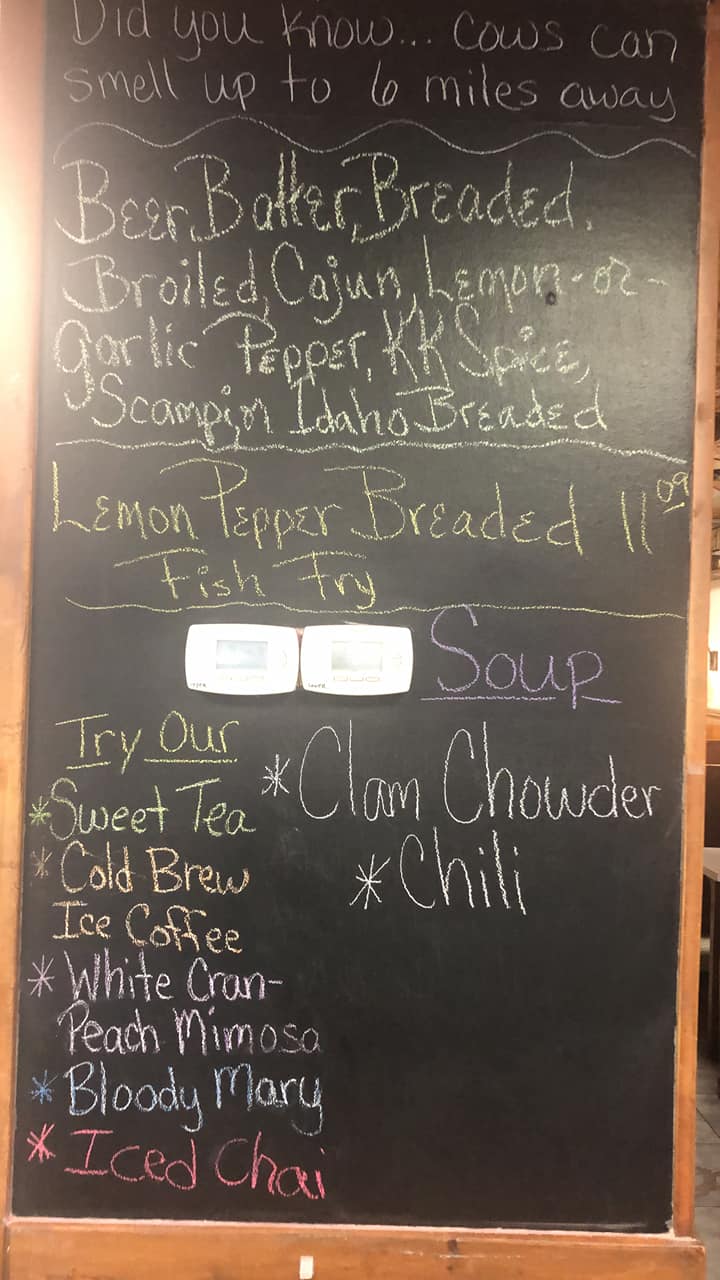 Did you know... cows can
smell up to 6 miles away
Beer Batter, Breaded,
Broiled, Cajun, Lemon-or-
garlic Pepper, KK Spice,
Scampi, n Idaho Breaded
Lemon Pepper Breaded 11 09
Fish Fry
Soup
* Clam Chowder
* Chili
Try Our
* Sweet Tea
* Cold Brew
Ice Coffee
* White Cran-
Peach Mimosa
* Bloody Mary
* Iced Chai